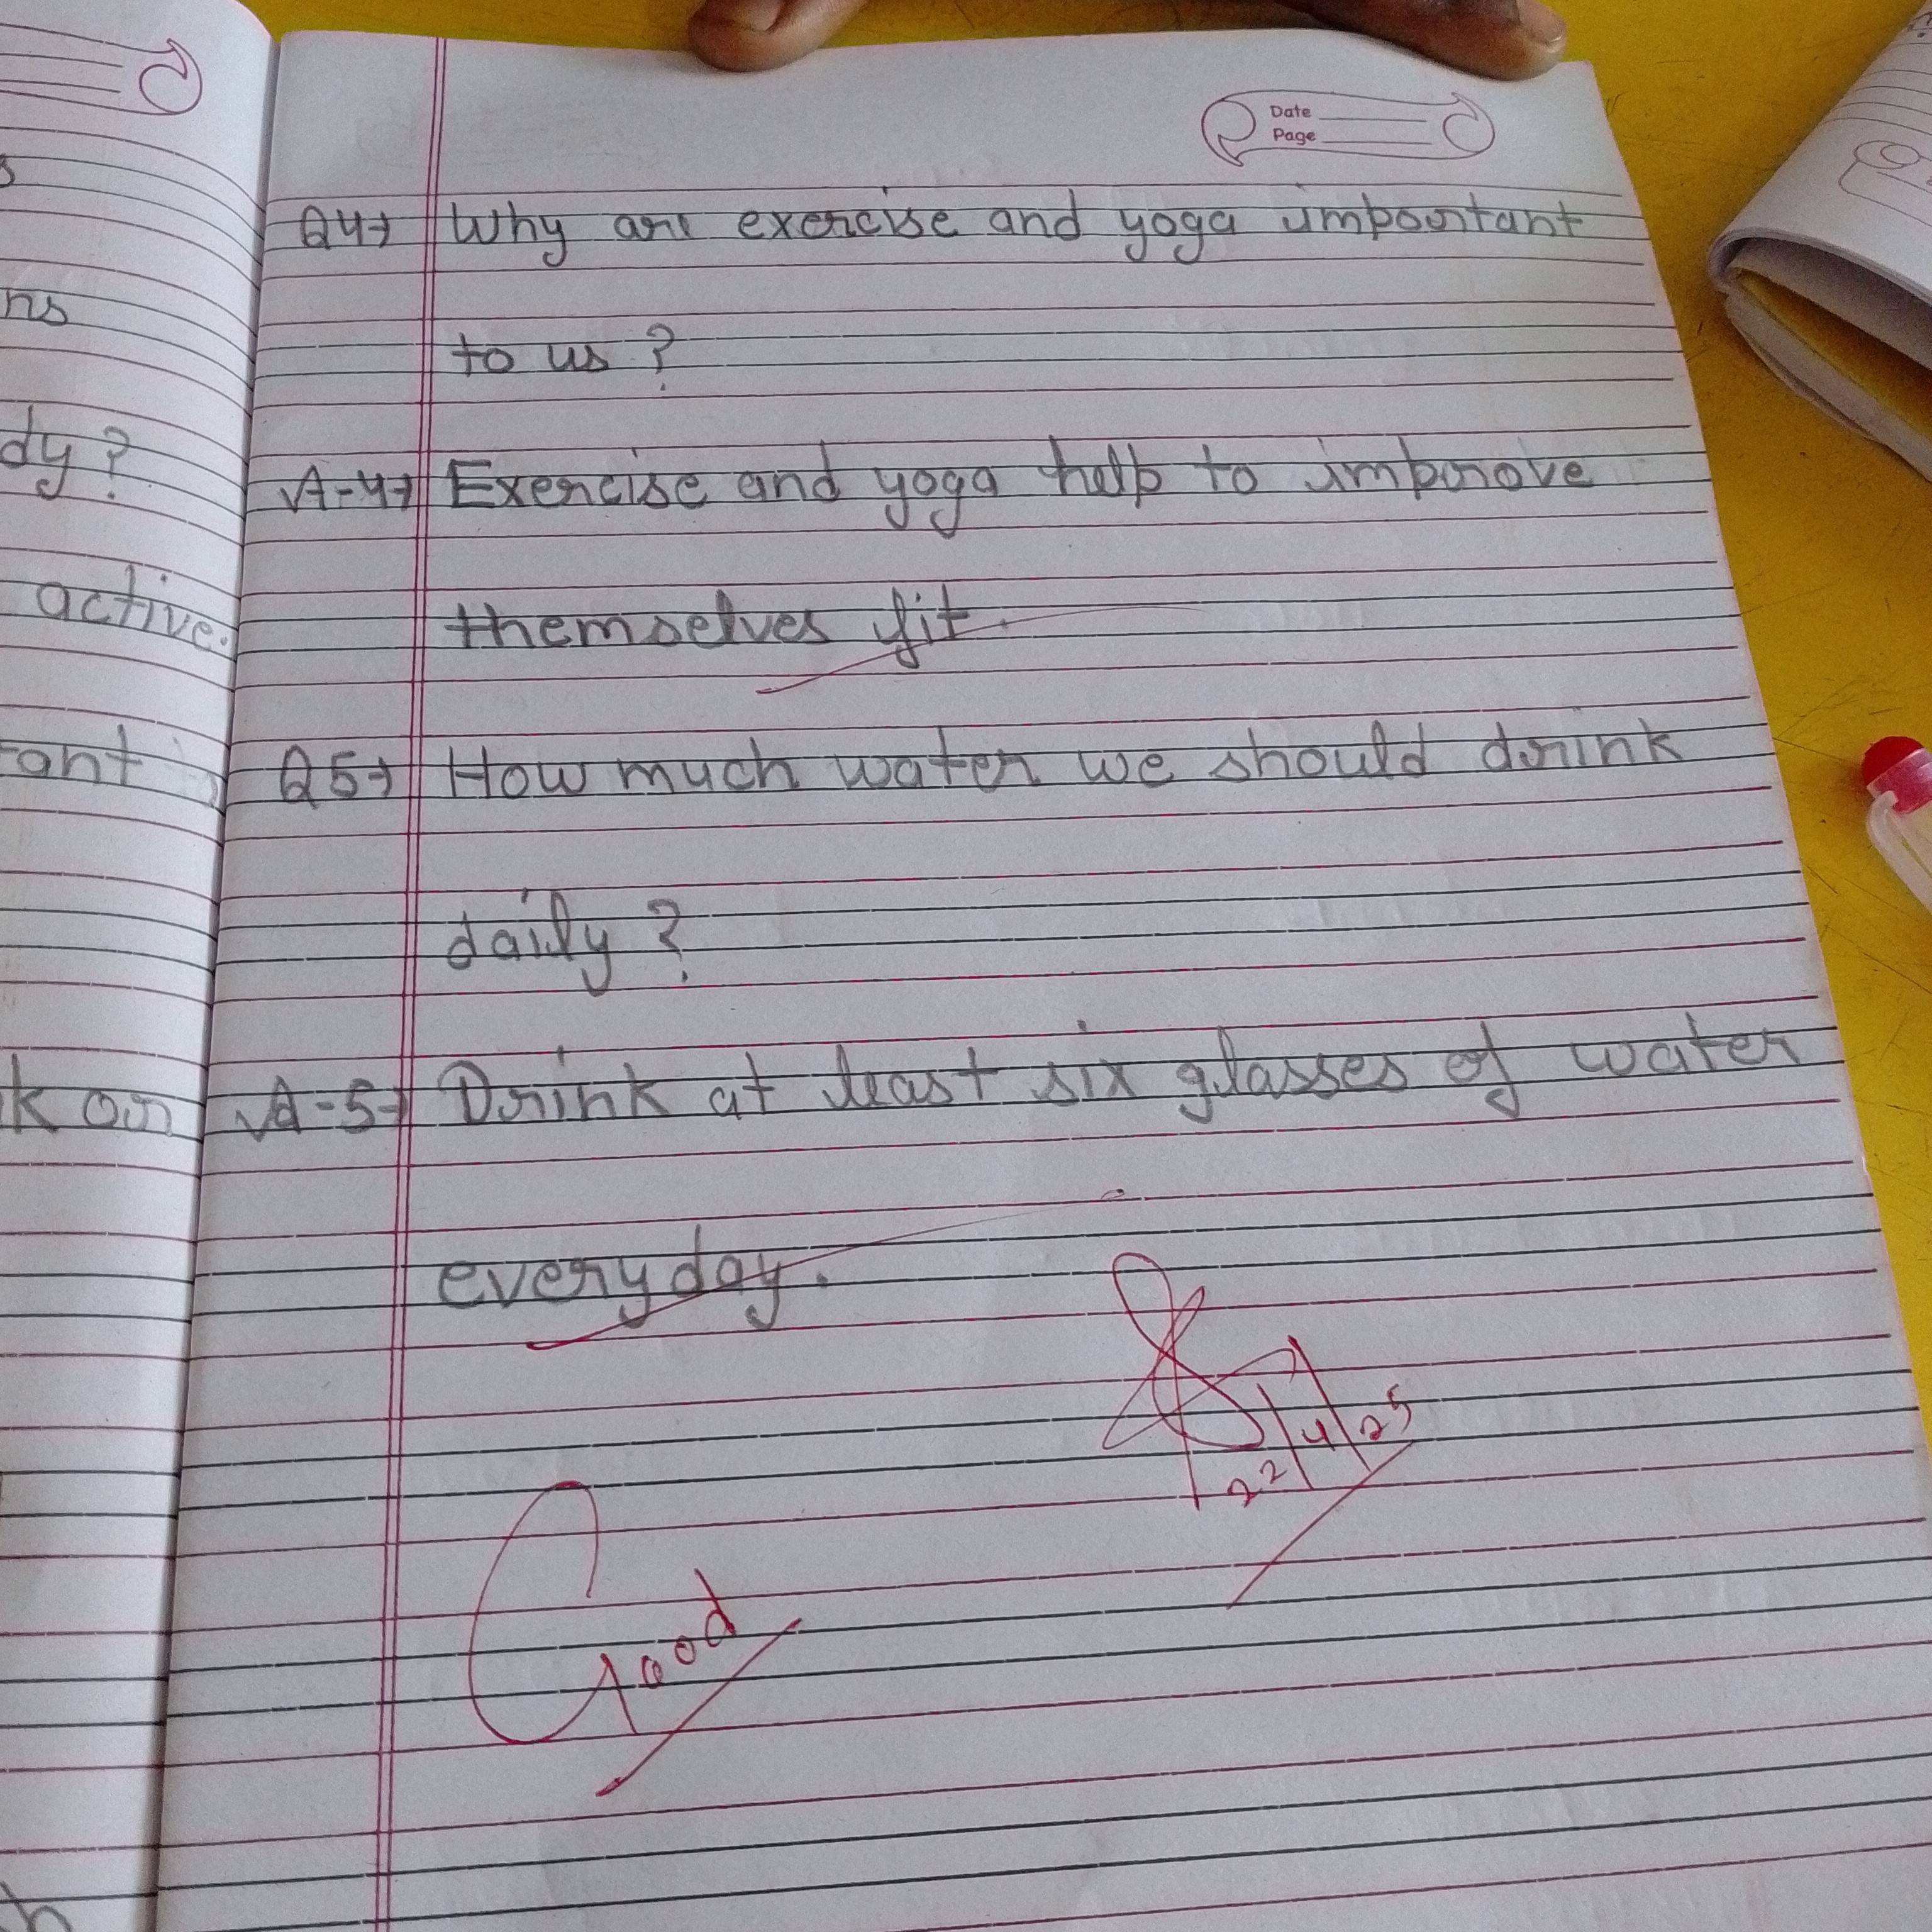 Date
Page
Q4→ Why are exercise and yoga important
to us ?
A-4→ Exercise and yoga help to improve
themselves fit.
Q5→ How much water we should drink
daily ?
A-5→ Drink at least six glasses of water
everyday.
22/4/25
Good
dy ?
active.
ant
k on